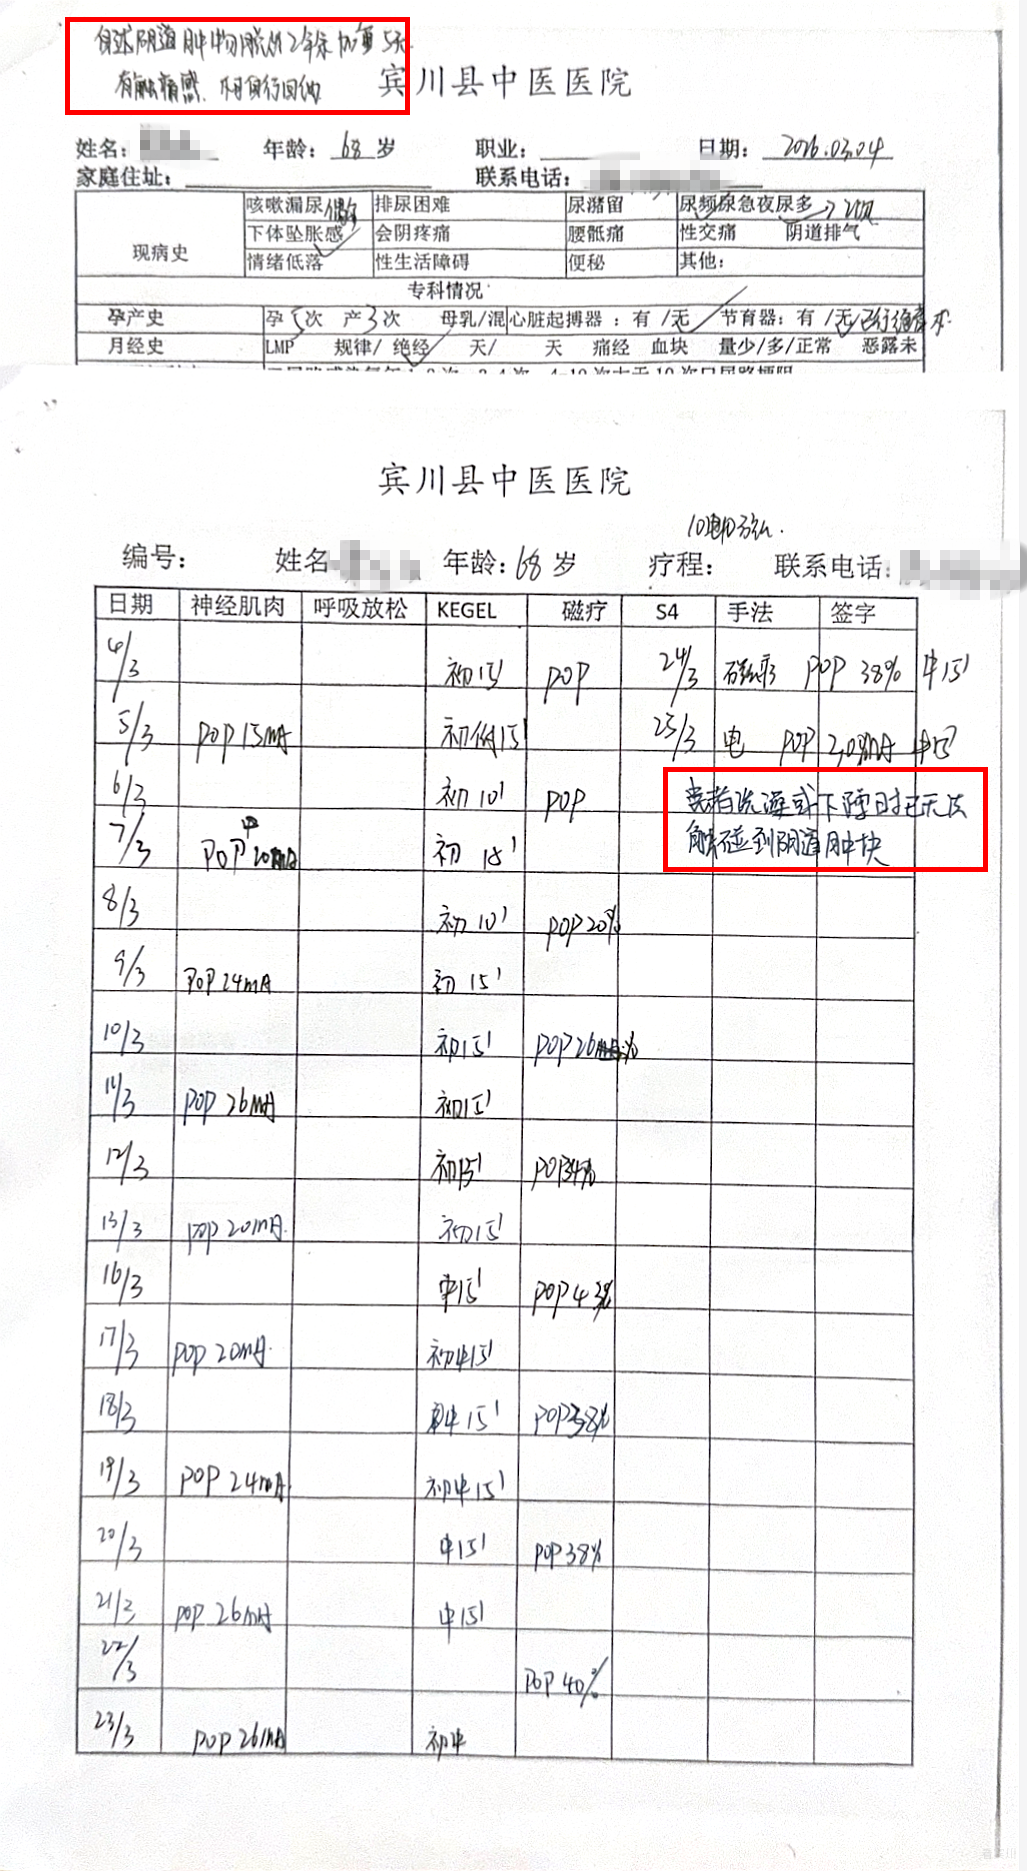 自述阴道肿物脱出2年余加重5天.
有触痛感、可自行回纳
宾川县中医医院
姓名: 年龄: 68 岁 职业: 日期: 2026.03.04
家庭住址: 联系电话:
现病史
咳嗽漏尿 偶尔 排尿困难 尿潴留 尿频尿急夜尿多
下体坠胀感 ✓ 会阴疼痛 腰骶痛 性交痛 阴道排气
情绪低落 性生活障碍 便秘 其他:
专科情况
孕产史 孕 5 次 产 3 次 母乳/混 心脏起搏器 : 有 /无 ✓ 节育器: 有 /无 ✓
月经史 LMP 规律/ 绝经 ✓ 天/ 天 痛经 血块 量少/多/正常 恶露未
宾川县中医医院
编号: 姓名 年龄: 68 岁 疗程: 联系电话:
日期 神经肌肉 呼吸放松 KEGEL 磁疗 S4 手法 签字
4/3 初15' POP 24/3 磁疗 POP 38% 中15'
5/3 POP 15mA 初低15' 25/3 电 POP
6/3 初10' POP 患者洗澡或下蹲时已无法
触碰到阴道肿块
7/3 POP 中 20mA 初 15'
8/3 初 10' POP 20%
9/3 POP 24mA 初 15'
10/3 初15' POP 26%
11/3 POP 26mA 初15'
12/3 初15' POP34%
13/3 POP 20mA. 初15'
16/3 中15' POP 4
17/3 POP 20mA. 初中15'
18/3 中15' POP38%
19/3 POP 24mA. 初中15'
20/3 中15' POP38%
21/3 POP 26mA 中15'
22/3 POP 40%
23/3 POP 26mA 初中